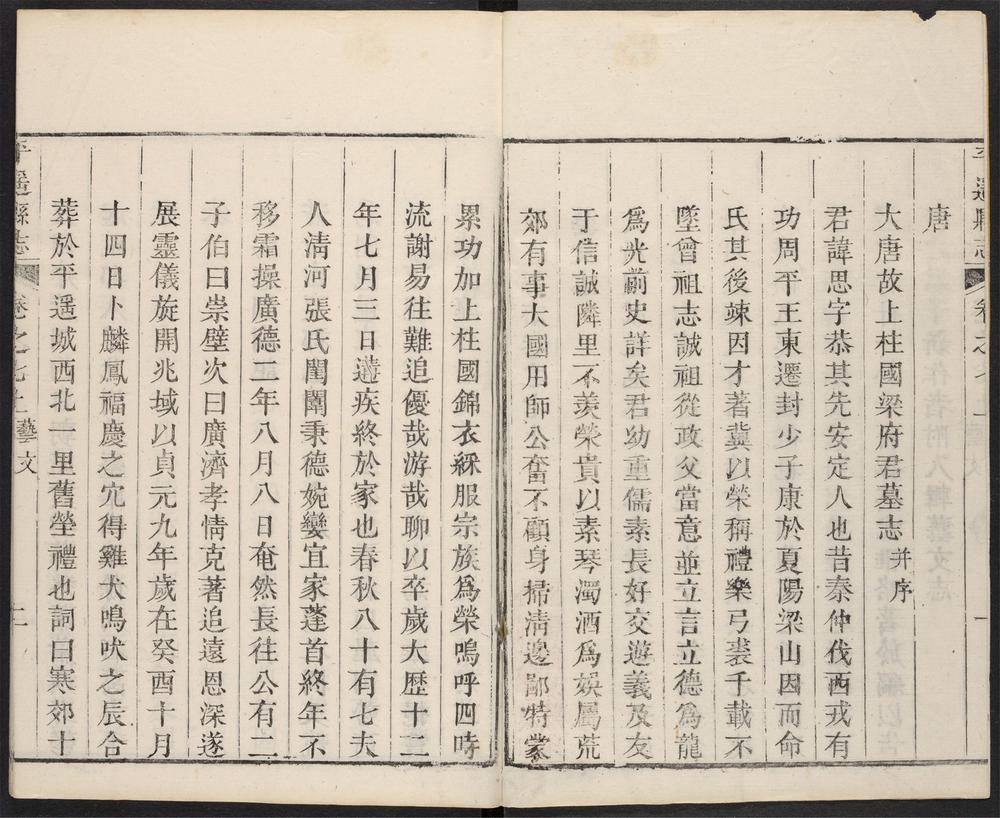 平遥縣志 卷之十一
唐
大唐故上柱國梁府君墓志并序
君諱思字恭其先安定人也昔秦仲伐西戎有
功周平王東遷封少子康於夏陽梁山因而命
氏其後竦因才著冀以榮稱禮樂弓裘千載不
墜曾祖志誠祖從政父當意並立言立德爲龍
爲光前史詳矣君幼重儒素長好交遊義及友
于信誠隣里不羨榮貴以素琴濁酒爲娯屬荒
郊有事大國用師公奮不顧身掃清邊鄙特蒙
累功加上柱國錦衣綵服宗族爲榮嗚呼四時
流謝易往難追優哉游哉聊以卒歲大歷十二
年七月三日遘疾終於家也春秋八十有七夫
人淸河張氏閨闈秉德婉孌宜家蓬首終年不
移霜操廣德二年八月八日奄然長往公有二
子伯曰崇璧次曰廣濟孝情克著追遠恩深遂
展靈儀旋開兆域以貞元九年歲在癸酉十月
十四日卜麟鳳福慶之宂得雞犬鳴吠之辰合
葬於平遥城西北一里舊塋禮也詞曰寒郊十
平遥縣志 卷之十一 藝文 二